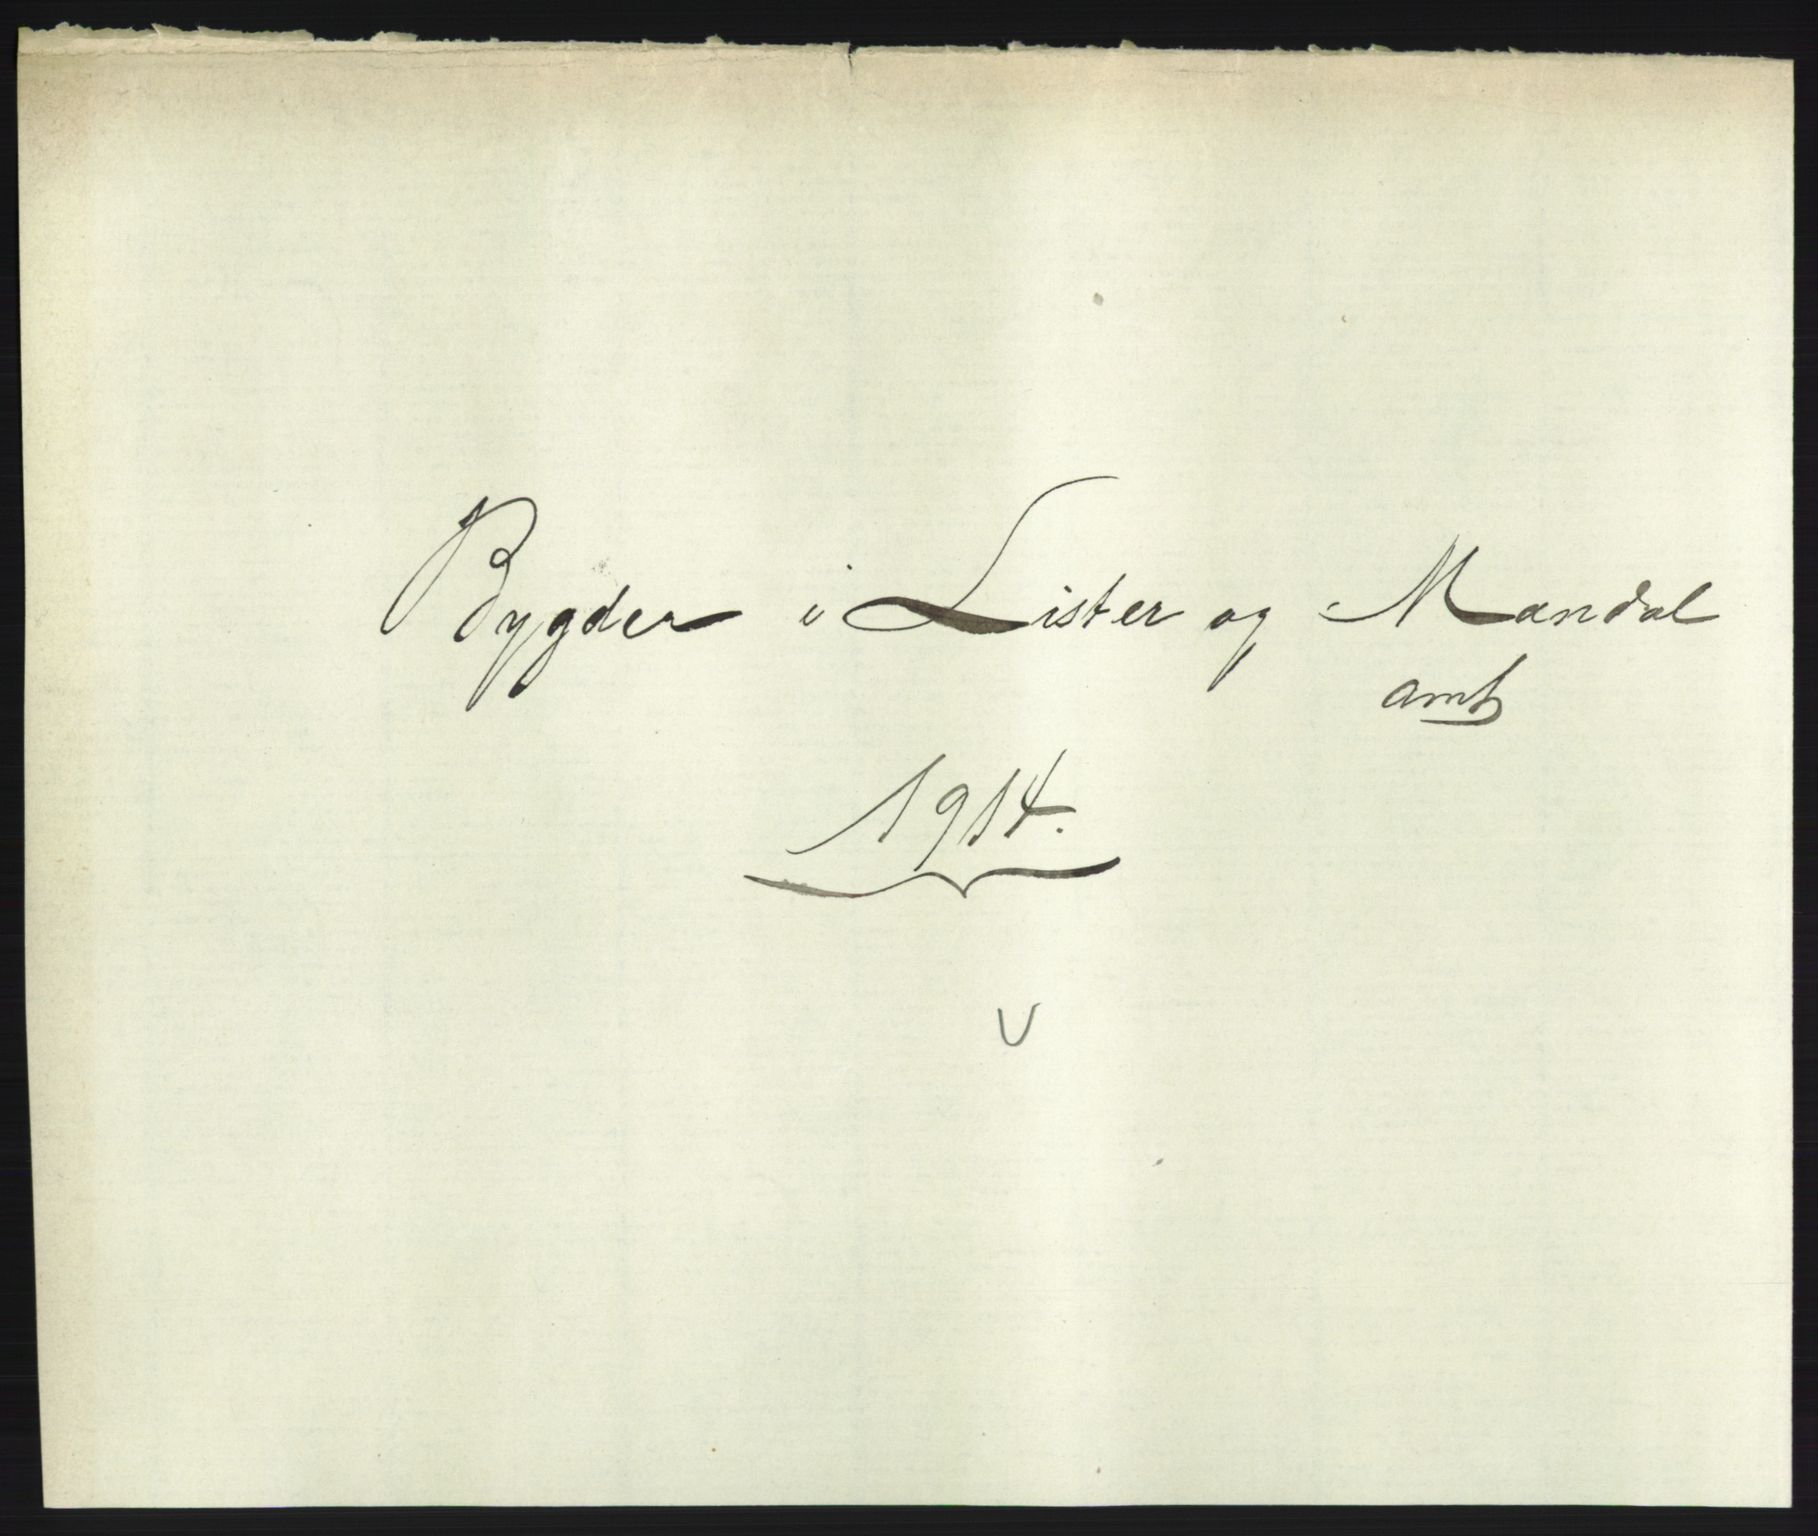 Bygder i Lister og Mandal
amt
1914.
V